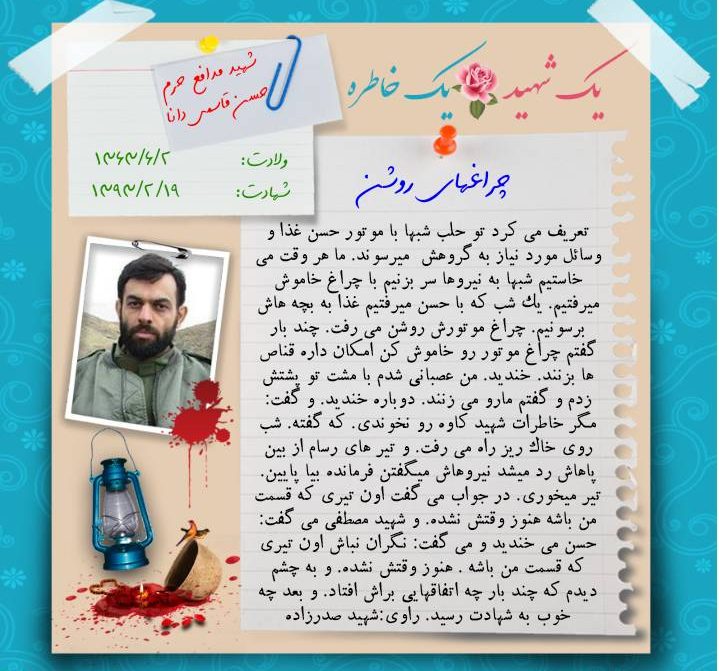 یک شهید یک خاطره
شهید مدافع حرم
حسن قاسمی دانا
ولادت: ۱۳۶۳/۶/۲
شهادت: ۱۳۹۳/۲/۱۹
چراغهای روشن
تعریف می کرد تو حلب شبها با موتور حسن غذا و
وسائل مورد نیاز به گروهش میرسوند. ما هر وقت می
خاستیم شبها به نیروها سر بزنیم با چراغ خاموش
میرفتیم. یك شب که با حسن میرفتیم غذا به بچه هاش
برسونیم. چراغ موتورش روشن می رفت. چند بار
گفتم چراغ موتور رو خاموش کن امکان داره قناص
ها بزنند. خندید. من عصبانی شدم با مشت تو پشتش
زدم و گفتم مارو می زنند. دوباره خندید. و گفت:
مگر خاطرات شهید کاوه رو نخوندی. که گفته. شب
روی خاك ریز راه می رفت. و تیر های رسام از بین
پاهاش رد میشد نیروهاش میگفتن فرمانده بیا پایین.
تیر میخوری. در جواب می گفت اون تیری که قسمت
من باشه هنوز وقتش نشده. و شهید مصطفی می گفت:
حسن می خندید و می گفت: نگران نباش اون تیری
که قسمت من باشه . هنوز وقتش نشده. و به چشم
دیدم که چند بار چه اتفاقهایی براش افتاد. و بعد چه
خوب به شهادت رسید. راوی:شهید صدرزاده